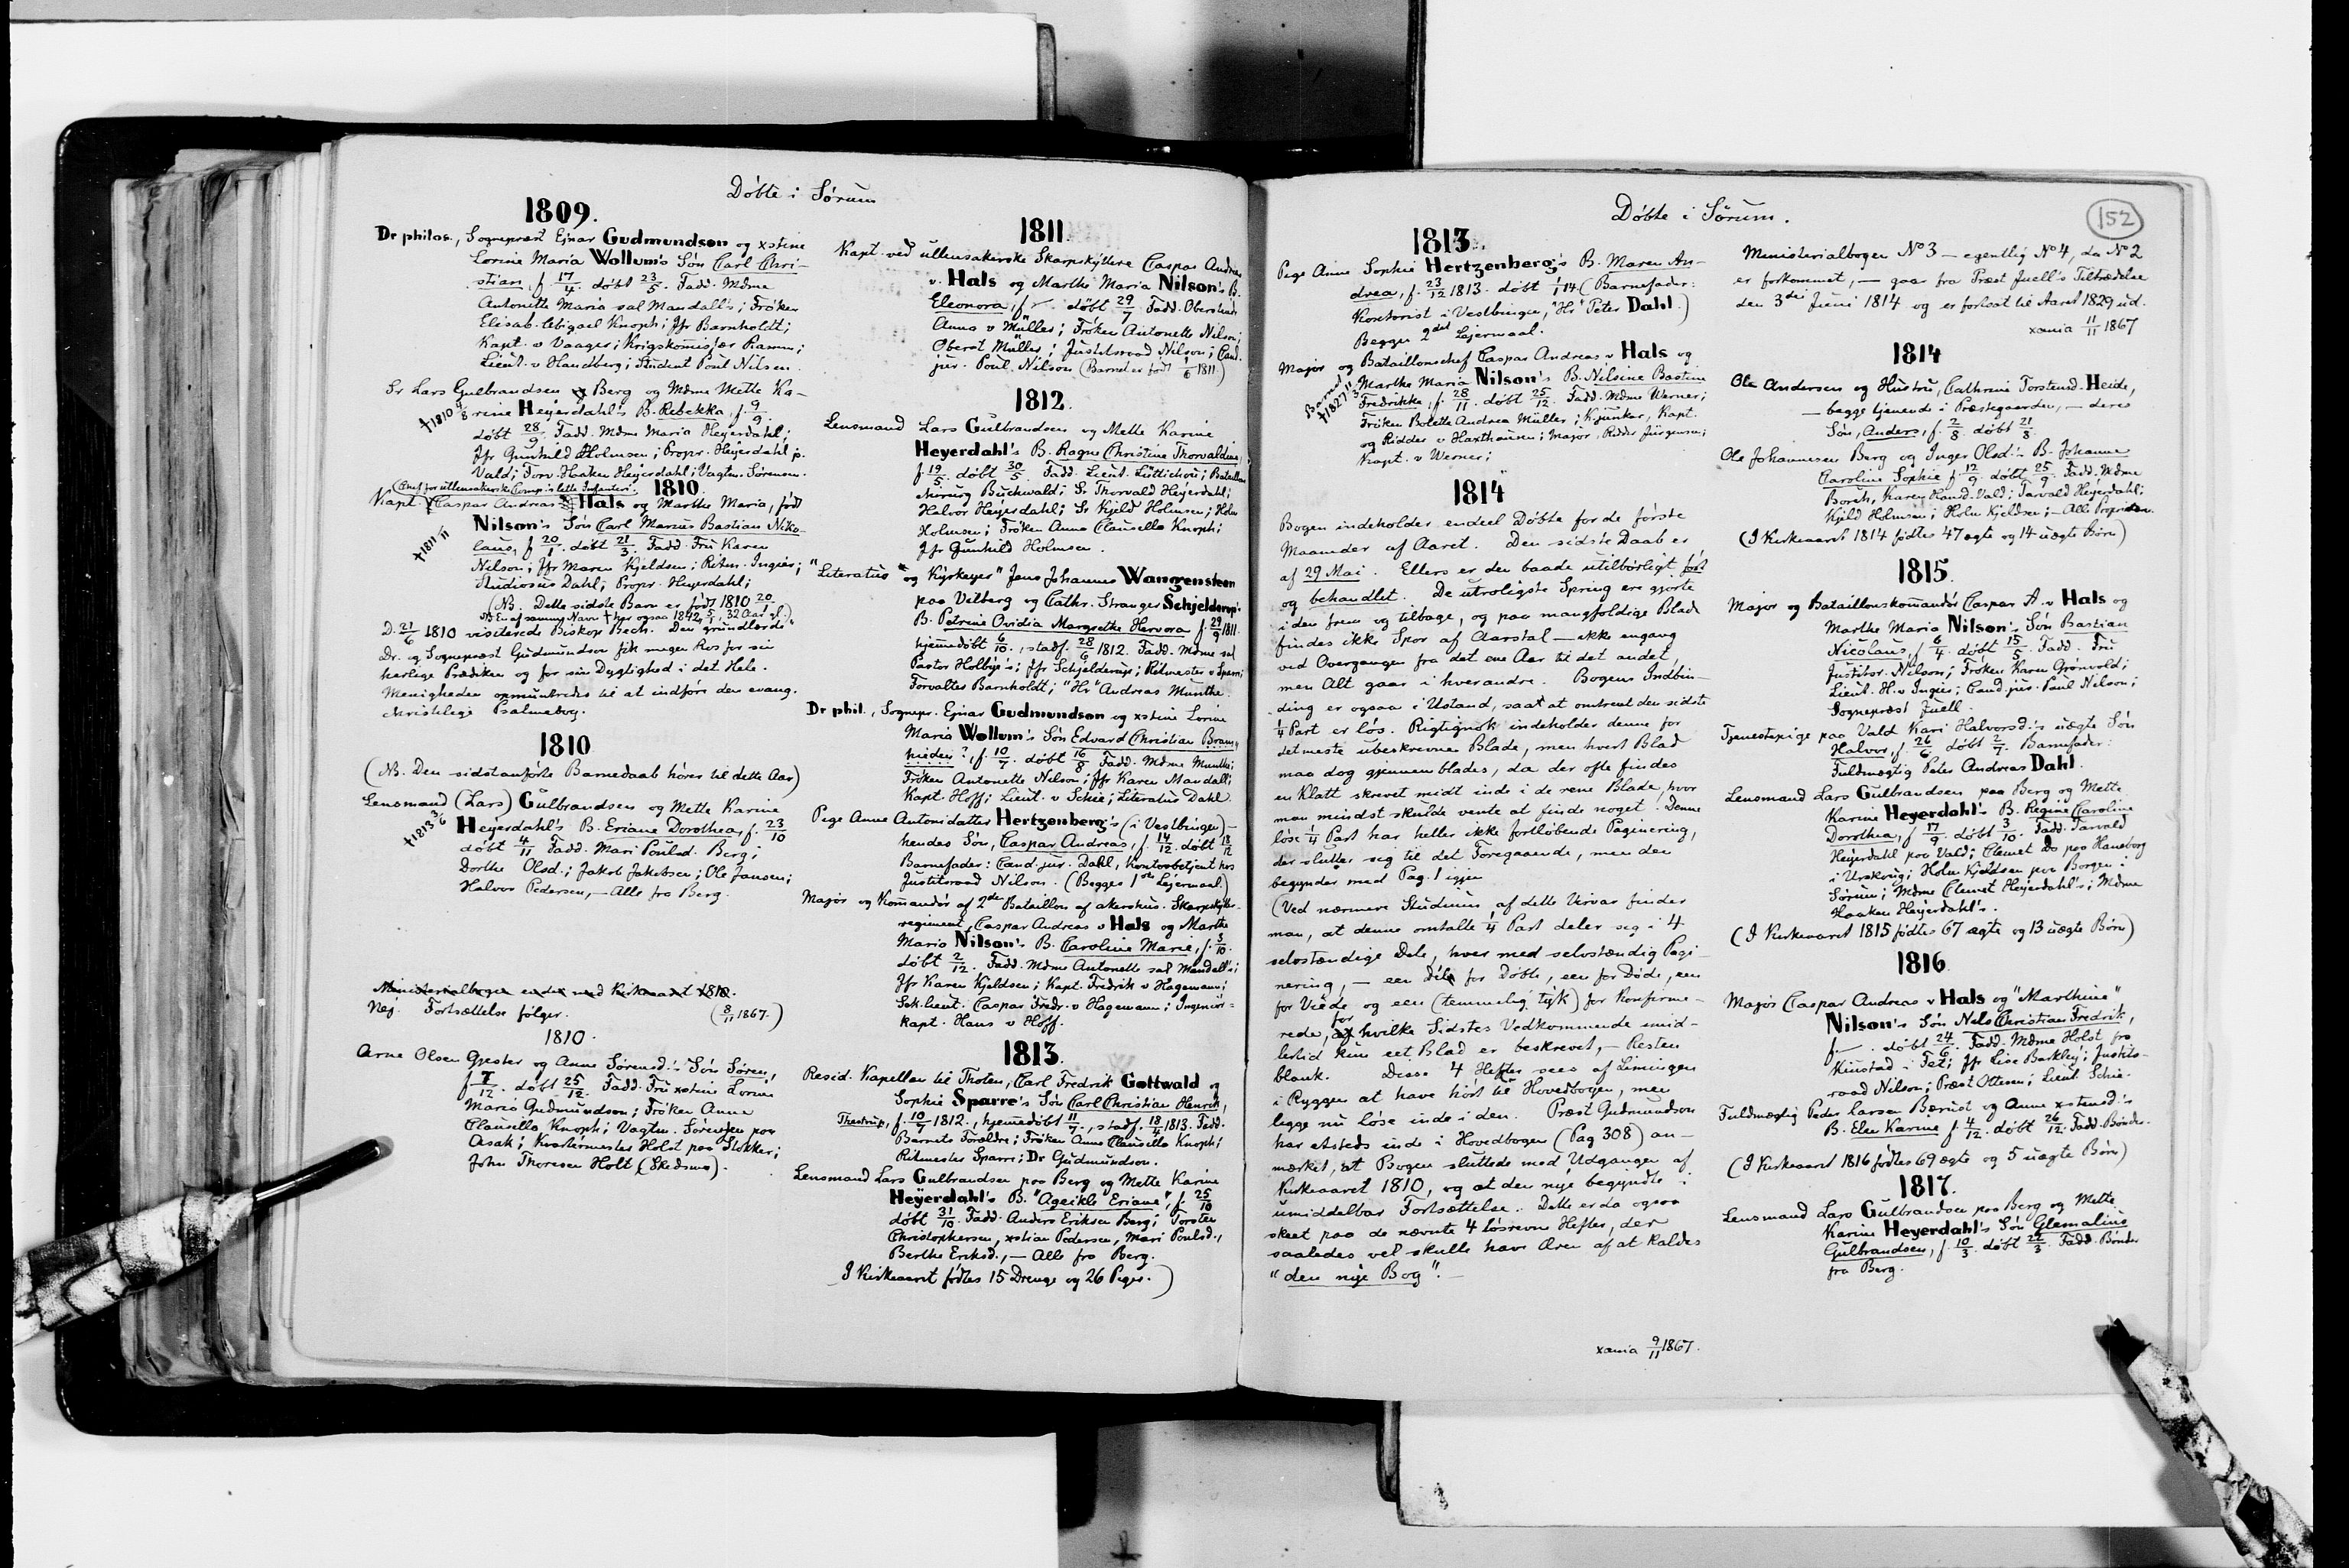 Döbte i Sörum
1809.
Dr philos., Sognepræst Ejnar Gudmundson og xstine
Lorine Maria Wollum's Sön Carl Chri-
stian, f 17/4. döbt 23/5. Fadd. Mdme
Antonette Maria sal Mandall's; Fröken
Elisab. Abigael Knoph; Jfr Barnholdt;
Kapt. v Vaager; Krigskommisær Ramm;
Lieut. v Handberg; Student Poul Nilsen.
Sr Lars Gulbrandsen Berg og Mdme Mette Ka-
rine Heyerdahl's B. Rebekka, f. 9/9.
döbt 28/9. Fadd. Mdme Maria Heyerdahl;
Jfr Gunhild Holmsen; Propr. Heyerdahl p.
Vald; Forv. Haaken Heyerdahl; Vagtm. Sörensen.
1810.
Kapt. Caspar Andreas v Hals og Marthe Maria, född
Nilson's Sön Carl Marius Bastian Niko-
laus, f 20/1. döbt 21/3. Fadd. Fru Karen
†1811
Nilson; Jfr Maren Kjeldsen; Ritm. Ingier;
Studiosus Dahl; Propr. Heyerdahl;
(NB. Dette sidste Barn er född 1810 20/1
D. 21/6 1810 visiterede Biskop Bech. Den "grundlærde"
Dr. og Sognepræst Gudmundson fik megen Ros for sin
herlige Prædiken og for sin Dygtighed i det Hele.
Menigheden opmuntredes til at indföre den evang.
christelige Psalmebog.
1810
(NB. Den sidstanförte Barnedaab hörer til dette Aar)
Lensmand (Lars) Gulbrandsen og Mette Karine
†1813 3/6
Heyerdahl's B. Eriane Dorothea, f. 23/10
döbt 4/11 Fadd. Mari Poulsd. Berg;
Dorthe Olsd.; Jakob Jakobsen; Ole Jansen;
Halvor Pedersen, — Alle fra Berg.
Ministerialbogen ender med Kirkeaaret 1810.
Nej. Fortsættelse fölger. (8/11 1867.)
1810.
Arne Olsen Gjester og Anne Sörensd.'s Sön Sören,
f 7/12. döbt 25/12. Fadd. Fru xstine Lorine
Maria Gudmundson; Fröken Anne
Clausella Knoph; Vagtm. Sörensen paa
Asak; Kvartermester Holst paa Stokker;
John Thoresen Holt (Skedsmo).
1811.
Kapt. ved ullensakerske Skarpskyttere Caspar Andreas
v. Hals og Marthe Maria Nilson's B.
Eleonora, f — döbt 29/7 Fadd. Oberstinde
Anna v Müller; Fröken Antonette Nilson;
Oberst Müller; Justitsraad Nilson; Cand.
jur. Poul Nilson (Barnet er född 1/6 1811.)
1812.
Lensmand Lars Gulbrandsen og Mette Karine
Heyerdahl's B. Ragne Christine Thorvaldine,
f 19/5. döbt 30/5. Fadd. Lieut. Lüttichou; Bataillons
chirurg Buchwald; Sr Thorvald Heyerdahl;
Halvor Heyerdahl; Sr Kjeld Holmsen; Holm
Holmsen; Fröken Anne Clausella Knoph;
Jfr Gunhild Holmsen.
"Literatus" og Kirkeyer" Jens Johannes Wangensteen
paa Vilberg og Cathr. Stranger Schjelderup's
B. Petrine Ovidia Margrethe Hervora f. 29/9 1811.
hjemmedöbt 6/10., stadf. 28/6 1812. Fadd. Mdme sal
Pastor Holbye's; Jfr Schjelderup; Ritmester v Sparre;
Forvalter Barnholdt; "Hr" Andreas Munthe.
Dr phil., Sognepr. Ejnar Gudmundson og xstine Lorine
Maria Wollum's Sön Edvard Christian Bram-
nieder?, f. 10/7. döbt 16/8 Fadd. Mdme Munthe;
Fröken Antonette Nilson; Jfr Karen Mandall;
Kapt. Hoff; Lieut. v Schie; Literatus Dahl.
Pige Anne Antonidatter Hertzenberg's (i Vestbyingen) —
hendes Sön, Caspar Andreas, f. 14/12. döbt 18/12
Barnefader: Cand. jur. Dahl, Kontorbetjent hos
Justitsraad Nilson. (Begges 1ste Lejermaal.)
Major og Kommandör af 2den Bataillon af akershus. Skarpskytter-
regiment, Caspar Andreas v Hals og Marthe
Maria Nilson's B. Caroline Marie, f. 3/10.
döbt 2/12. Fadd. Mdme Antonette sal Mandall's;
Jfr Karen Kjeldsen; Kapt. Fredrik v Hagemann;
Sek.lieut. Caspar Fredr. v Hagemann; Ingeniör-
kapt. Hans v Hoff.
1813.
Resid. Kapellan til Thoten, Carl Fredrik Gottwald og
Sophie Sparre's Sön Carl Christian Henrik,
Thestrup, f. 10/7 1812., hjemmedöbt 11/7., stadf. 18/4 1813. Fadd.
Barnets Forældre; Fröken Anne Clausella Knoph;
Ritmester Sparre; Dr Gudmundson.
Lensmand Lars Gulbrandsen paa Berg og Mette Karine
Heyerdahl's B. "Ageikle Eriane", f. 25/10
döbt 31/10. Fadd. Anders Eriksen Berg; Torsten
Christophersen, xstian Pedersen, Mari Poulsd.,
Berthe Eriksd., — Alle fra Berg.
(I Kirkeaaret födtes 15 Drenge og 26 Piger.)
Döbte i Sörum.
152
1813.
Pige Anne Sophie Hertzenberg's B. Maren An-
drea, f. 23/12 1813. döbt 1/1 14 (Barnefader:
Kontorist i Vestbyingen, "Hr" Peter Dahl.)
Begges 2det Lejermaal.
Major og Bataillonschef Caspar Andreas v Hals og
Marthe Maria Nilson's B. Nilsine Bastine
Fredrikke, f. 28/11. döbt 25/12. Fadd. Mdme Werner;
Fröken Bolette Andrea Müller; Kjunker, Kapt.
og Ridder v Haxthausen; Major, Ridder Jürgensen;
Kapt. v Werner;
1814
Bogen indeholder endeel Döbte for de förste
Maaneder af Aaret. Den sidste Daab er
af 29 Mai. Ellers er den baade utilbörligt fört
og behandlet. De utroligste Spring ere gjorte
iden frem og tilbage, og paa mangfoldige Blade
findes ikke Spor af Aarstal — ikke engang
ved Overgangen fra det ene Aar til det andet,
men Alt gaar i hverandre. Bogens Indbin-
ding er ogsaa i Ustand, saat at omtrent den sidste
1/4 Part er lös. Rigtignok indeholder denne for
detmeste ubeskrevne Blade, men hvert Blad
maa dog gjennemblades, da der ofte findes
en Klatt skrevet midt inde i de rene Blade, hvor
man mindst skulde vente at finde noget. Denne
löse 1/4 Part har heller ikke fortlöbende Paginering,
der slutter seg til det Foregaaende, men den
begynder med Pag. 1 igjen
(Ved nærmere Studium af dette Virvar finder
man, at denne omtalte 1/4 Part deler seg i 4
selvstændige Dele, hver med selvstændig Pagi-
nering, — een Del for Döbte, een for Döde, een
for Viede og een (temmelig tyk) for Konfirme-
rede, for hvilke Sidstes Vedkommende imid-
lertid kun eet Blad er beskrevet, — Resten
blank. Disse 4 Hefter sees af Limingen
i Ryggen at have hört til Hovedbogen, men
ligge nu löse inde i den. Præst Gudmundson
har etsteds inde i Hovedbogen (Pag 308) an-
mærket, at Bogen sluttede med Udgangen af
Kirkeaaret 1810, og at den nye begyndte i
umiddelbar Fortsættelse. Dette er da ogsaa
skeet paa de nævnte 4 lösrevne Hefter, der
saaledes vel skulle have Æren af at kaldes
"den nye Bog". —
xania 9/11 1867.
Ministerialbogen No 3 — egentlig No 4, da No 2
er forkommet, — gaar fra Præst Juell's Tiltrædelse
den 3die Juni 1814 og er fortsat til Aaret 1829 ud.
xania 11/11 1867
1814
Ole Andersen og Hustru, Cathrine Torstensd. Heide,
— begge tjenende i Præstegaarden, — deres
Sön, Anders, f. 2/8. döbt 21/8.
Ole Johannesen Berg og Inger Olsd.'s B. Johanne
Caroline Sophie f. 12/9. döbt 25/9. Fadd. Mdme
Borch, Karen Hansd. Vald; Tarvald Heyerdahl;
Kjeld Holmsen; Holm Kjeldsen; — Alle Proprietær.
(I Kirkeaaret 1814 födtes 47 ægte og 14 uægte Börn)
1815.
Major og Bataillonskommandör Caspar A. v Hals og
Marthe Maria Nilson's Sön Bastian
Nicolaus, f 6/4. döbt 15/5. Fadd. Fru
Justitsr. Nilson; Fröken Karen Grönvold;
Lieut. H. v Ingier; Cand. jur. Paul Nilson;
Sognepræst Juell.
Tjenestepige paa Vald Kari Halvorsd.'s uægte Sön
Halvor, f 26/6. döbt 2/7. Barnefader:
Fuldmægtig Peter Andreas Dahl.
Lensmand Lars Gulbrandsen paa Berg og Mette
Karine Heyerdahl's B. Regine Caroline
Dorothea, f 17/9. döbt 3/10. Fadd. Tarvald
Heyerdahl paa Vald; Clemet Do paa Haneborg
i Urskoug; Holm Kjeldsen paa Borgen i
Sörum; Mdme Clemet Heyerdahl's; Mdme
Haaken Heyerdahl's.
(I Kirkeaaret 1815 födtes 67 ægte og 13 uægte Börn)
1816.
Major Caspar Andreas v Hals og "Marthine"
Nilson's Sön Nils Christian Fredrik,
f. —. döbt 24/6. Fadd. Mdme Holst fra
Kiustad i Fet; Jfr Lise Barkley; Justits-
raad Nilson; Præst Ottesen; Lieut. Schie.
Fuldmægtig Peder Larsen Bærust og Anne xstensd.'s
B. Else Karine f. 4/12. döbt 26/12. Fadd. Bönder.
(I Kirkeaaret 1816 födtes 69 ægte og 5 uægte Börn)
1817.
Lensmand Lars Gulbrandsen paa Berg og Mette
Karine Heyerdahl's Sön Glemalius
Gulbrandsen, f. 10/3. döbt 22/3. Fadd. Bönder
fra Berg.